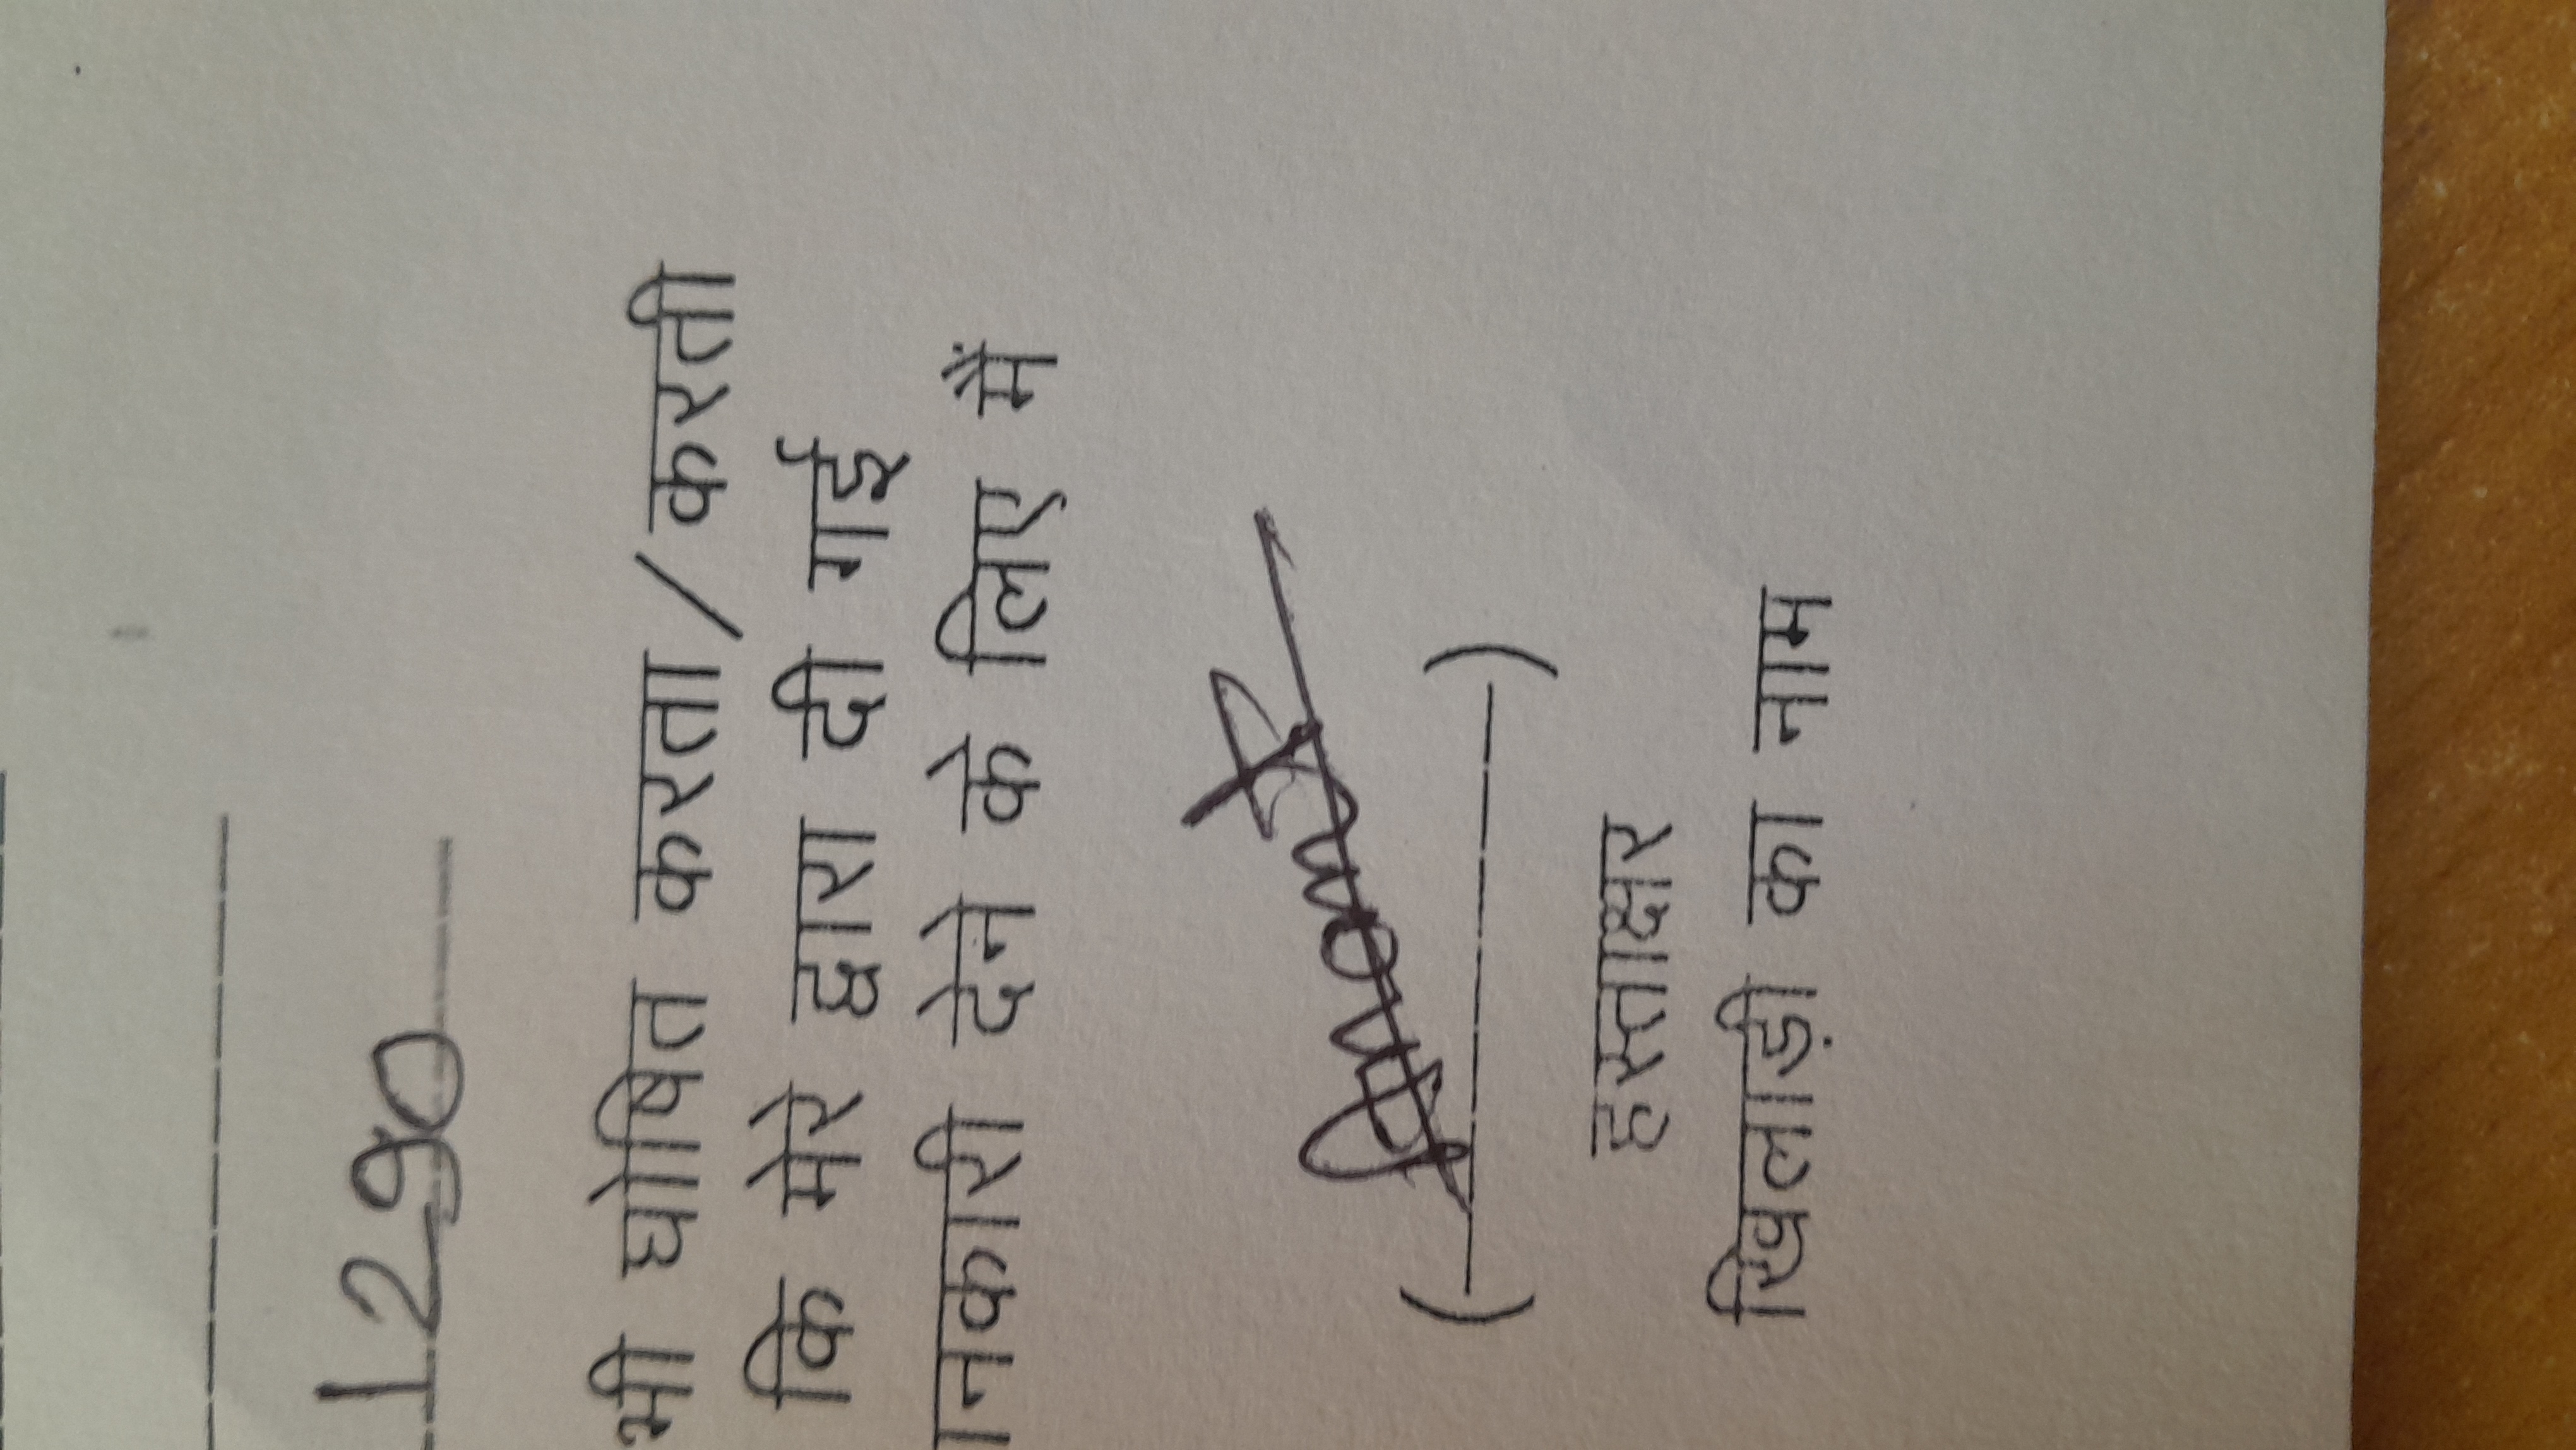 1290
भी घोषित करता/करती
कि मेरे द्वारा दी गई
नकारी देने के लिए मैं
(
)
हस्ताक्षर
खिलाड़ी का नाम